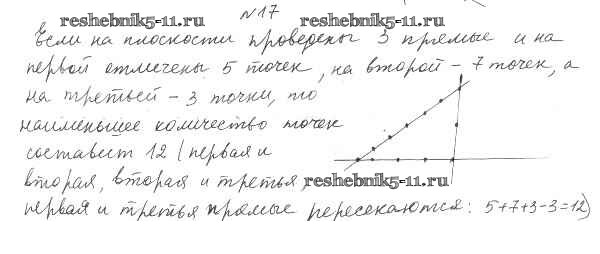 №17
reshebnik5-11.ru reshebnik5-11.ru
Если на плоскости проведены 3 прямые и на
первой отмечены 5 точек, на второй - 7 точек, а
на третьей - 3 точки, то
наименьшее количество точек
составит 12 (первая и
вторая, вторая и третья, reshebnik5-11.ru
первая и третья прямые пересекаются: 5+7+3-3=12)